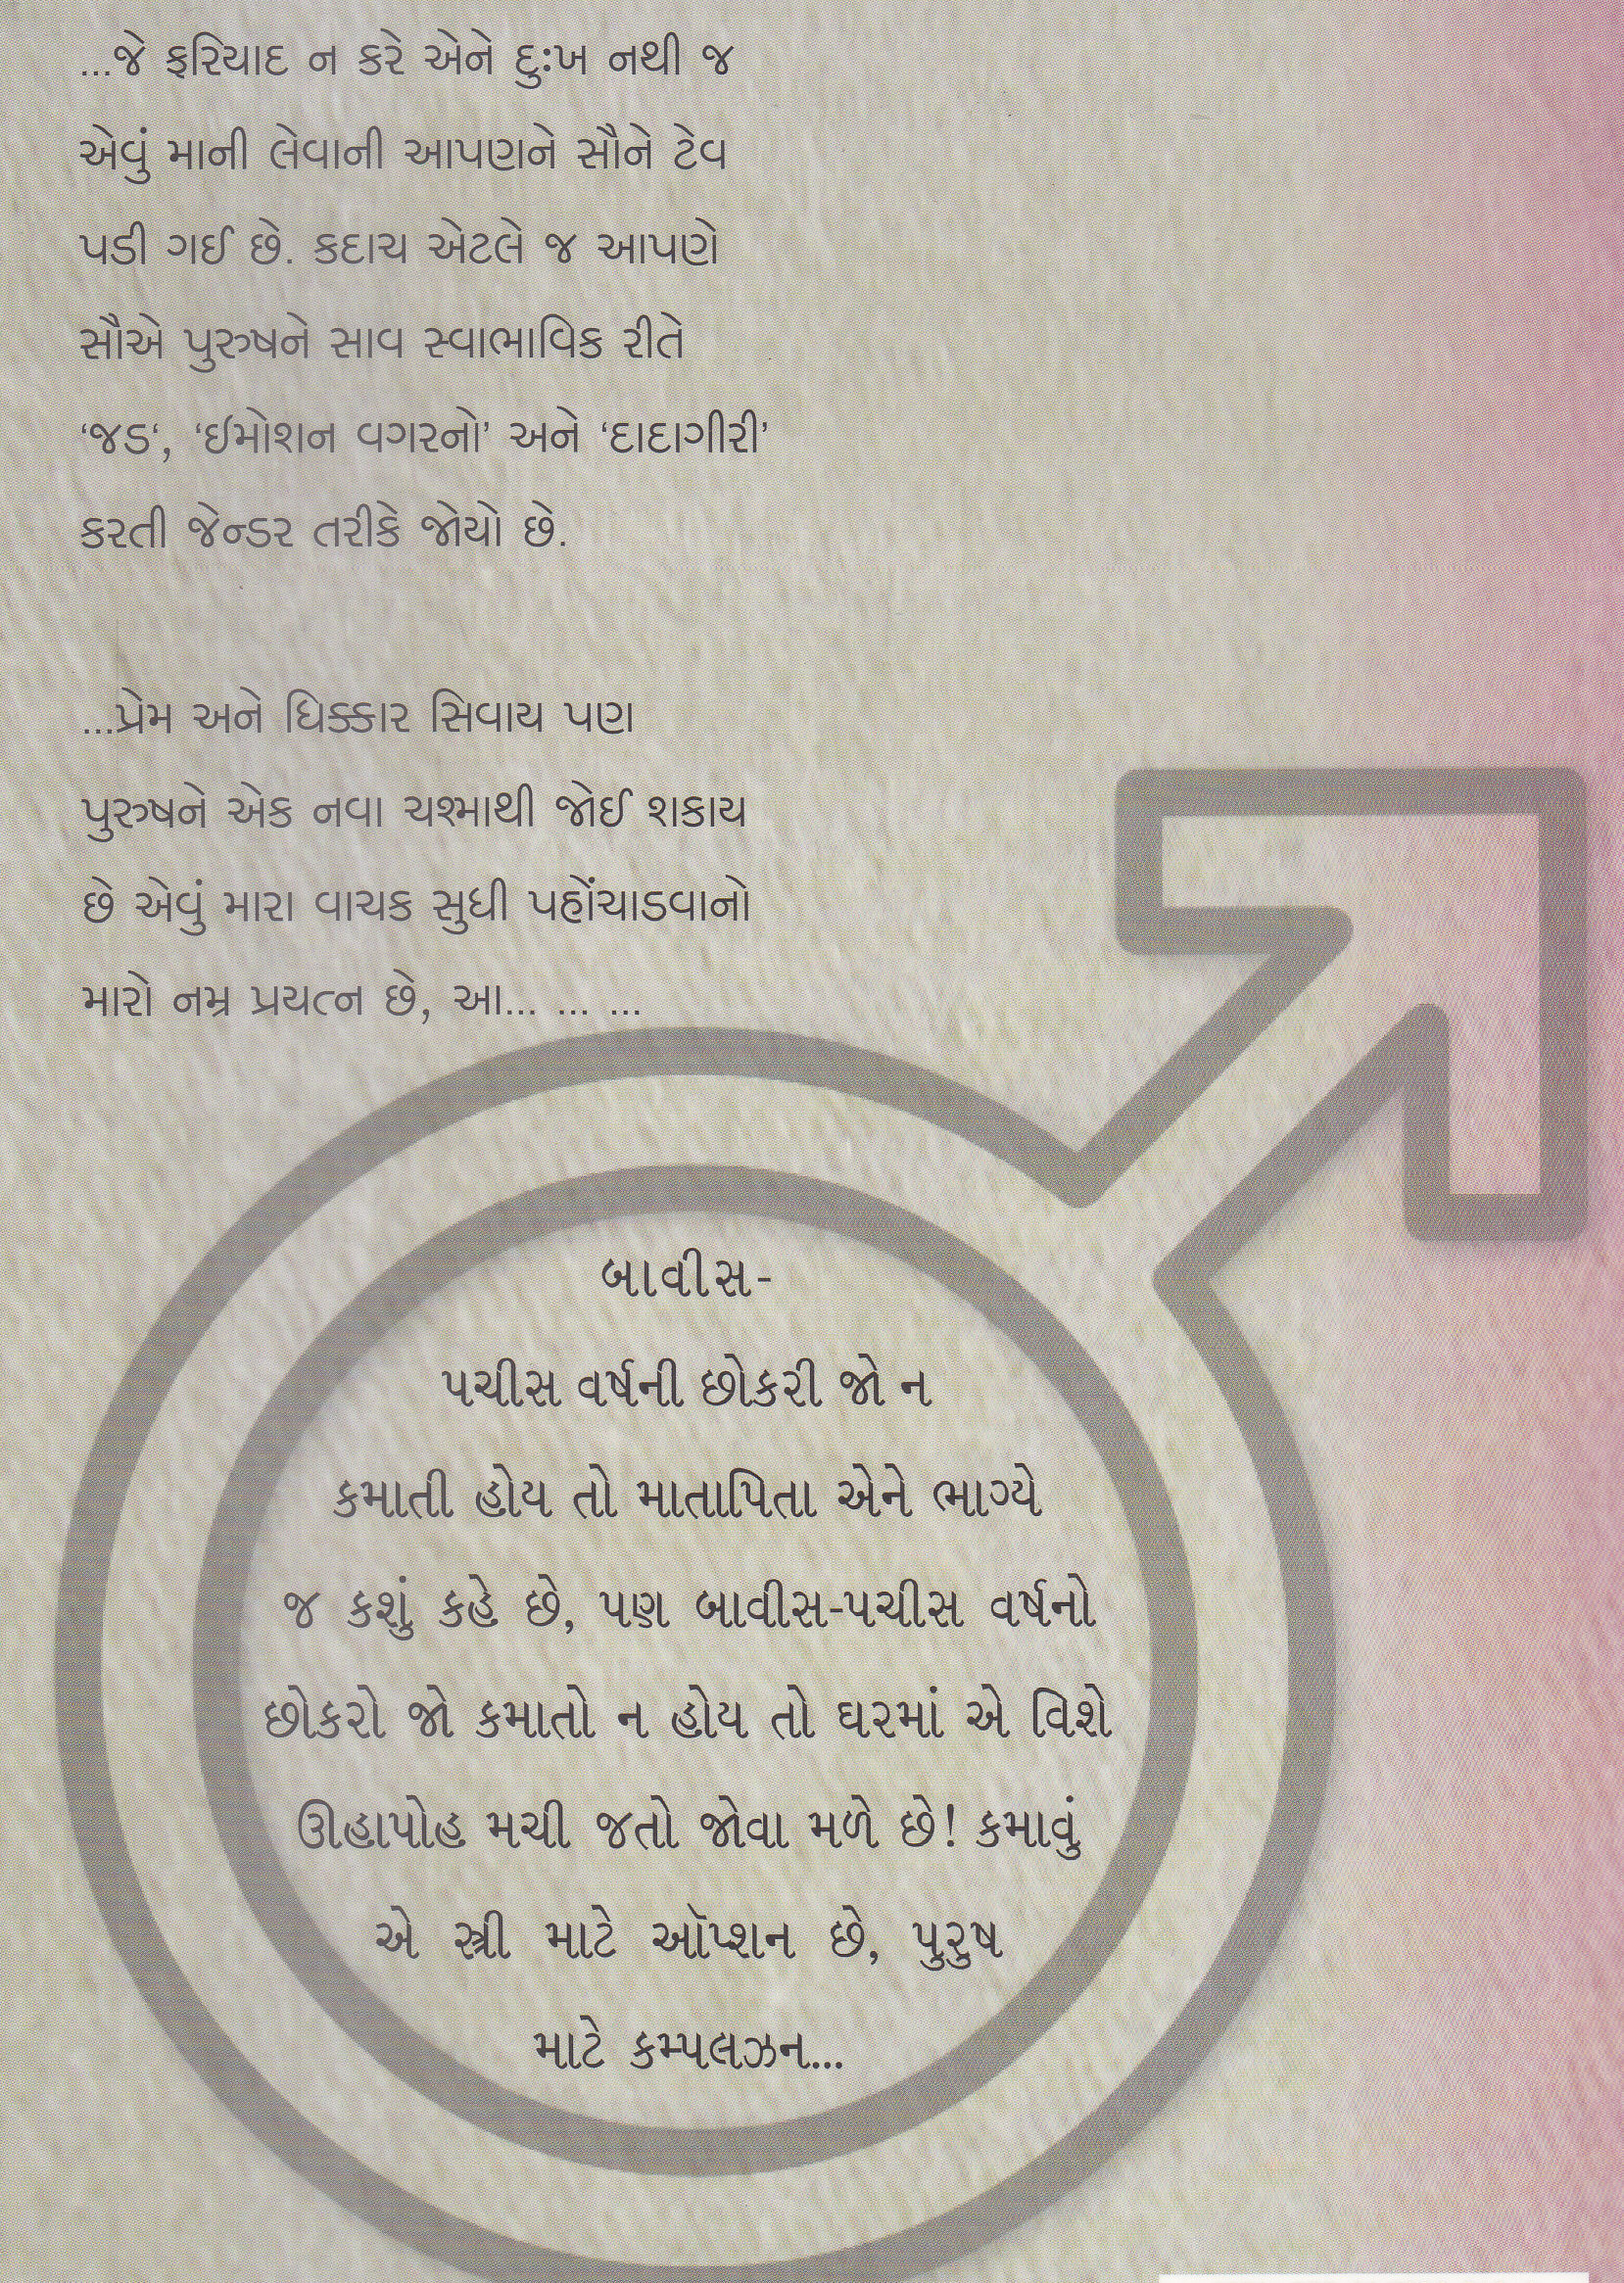 ...જે ફરિયાદ ન કરે એને દુઃખ નથી જ
એવું માની લેવાની આપણને સૌને ટેવ
પડી ગઈ છે. કદાચ એટલે જ આપણે
સૌએ પુરુષને સાવ સ્વાભાવિક રીતે
‘જડ‘, ‘ઈમોશન વગરનો’ અને ‘દાદાગીરી’
કરતી જેન્ડર તરીકે જોયો છે.
...પ્રેમ અને ધિક્કાર સિવાય પણ
પુરુષને એક નવા ચશ્માથી જોઈ શકાય
છે એવું મારા વાચક સુધી પહોંચાડવાનો
મારો નમ્ર પ્રયત્ન છે, આ... ... ...
બાવીસ-
પચીસ વર્ષની છોકરી જો ન
કમાતી હોય તો માતાપિતા એને ભાગ્યે
જ કશું કહે છે, પણ બાવીસ-પચીસ વર્ષનો
છોકરો જો કમાતો ન હોય તો ઘરમાં એ વિશે
ઊહાપોહ મચી જતો જોવા મળે છે! કમાવું
એ સ્ત્રી માટે ઑપ્શન છે, પુરુષ
માટે કમ્પલઝન...